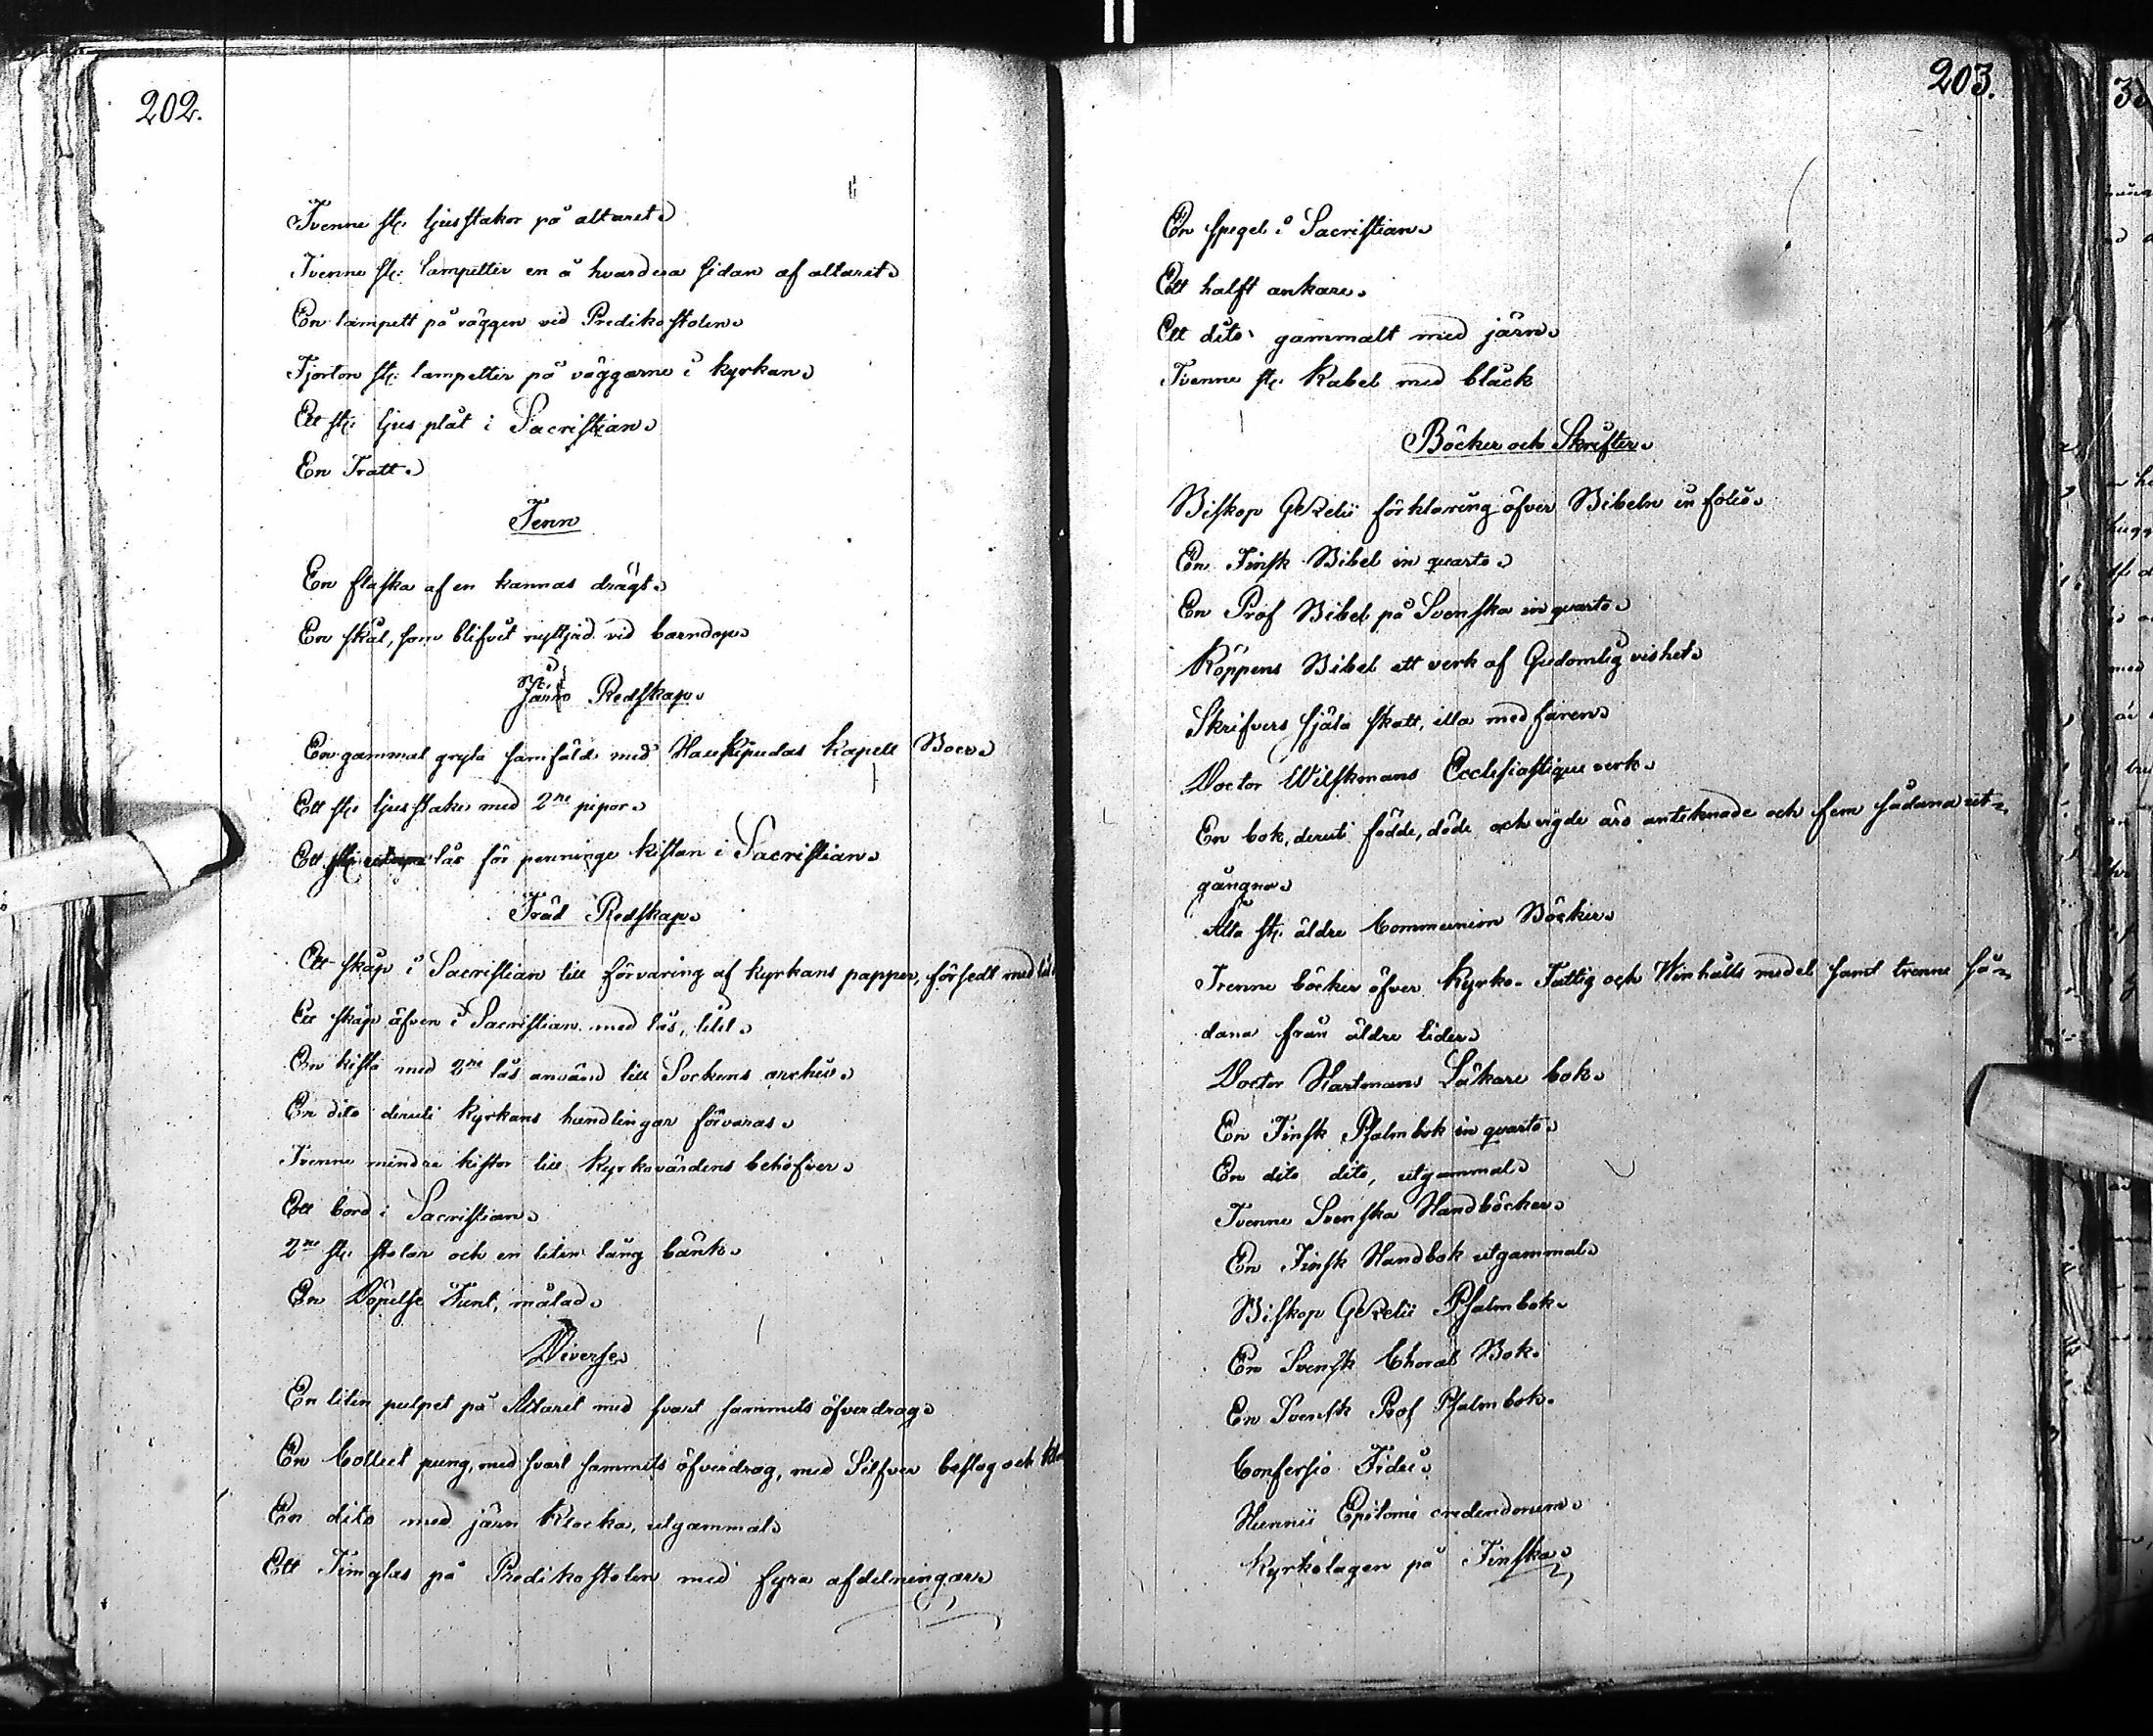 202.
Tvenne st: ljusstakor på altaret.
Tvenne st: lampetter en å hvardera sidan af altaret.
En lampett på väggen vid Predikostolen.
Fjorton st: lampetter på väggarne i kyrkan.
Ett st: ljus plåt i Sacristian.
En Tratt.
Tenn
En flaska af en kannas drägt.
En skål, som blifvit nyttjad vid barndop.
Järn Redskap.
En gammal gryta samfäld med Haukipudas Kapell Boer.
Ett st: ljusstake med 2ne pipor.
Ett lås för penninge kistan i Sacristian.
Träd Redskap.
Ett skåp i Sacristian till förvaring af kyrkans papper, försedt med
Ett skåp äfven i Sacristian med lås, litet.
En kista med 2ne lås använd till Sockens archiv.
En dito deruti kyrkans handlingar förvaras.
Tvenne mindre kistor till kyrkovärdens behöfver.
Ett bord i Sacristian.
2ne st: stolar och en liten lång bänk.
En Döpelse Funt, målad.
Diverse
En liten pulpet på Altaret med svart sammets öfverdrag.
En Collect pung, med svart sammets öfverdrag, med Silfver beslag och
En dito med järn Klocka, utgammal.
Ett Timglas på Predikostolen med fyra afdelningar.
203.
En spegel i Sacristian.
Ett halft ankare.
Ett dito gammalt med järn.
Tvenne st: Kabel med bläck
Böcker och Skrifter.
Biskop Gezelii förklaring öfver Bibeln in folio.
En Finsk Bibel in quarto.
En Prof Bibel på Svenska in quarto.
Köppens Bibel ett verk af Gudomlig vishet.
Skrifvers Själa skatt, illa medfaren.
Doctor Wilskmans Ecclesiastique verk.
En bok, deruti födde, döde och vigde äro anteknade och fem sådana ut-
gångna.
Åtta st: äldre Communion Böcker.
Trenne böcker öfver Kyrko- Fattig och Winhålls medel samt trenne så-
dana från äldre tider.
Doctor Hartmans Läkare bok.
En Finsk Psalmbok in quarto.
En dito dito, utgammal.
Tvenne Svenska Handböcker.
En Finsk Handbok utgammal.
Biskop Gezelii Psalmbok.
En Svensk Choral Bok.
En Svensk Prof Psalmbok.
Confessio Fidei.
Hunnii Epitome credendorum.
Kyrkolagen på Finska.